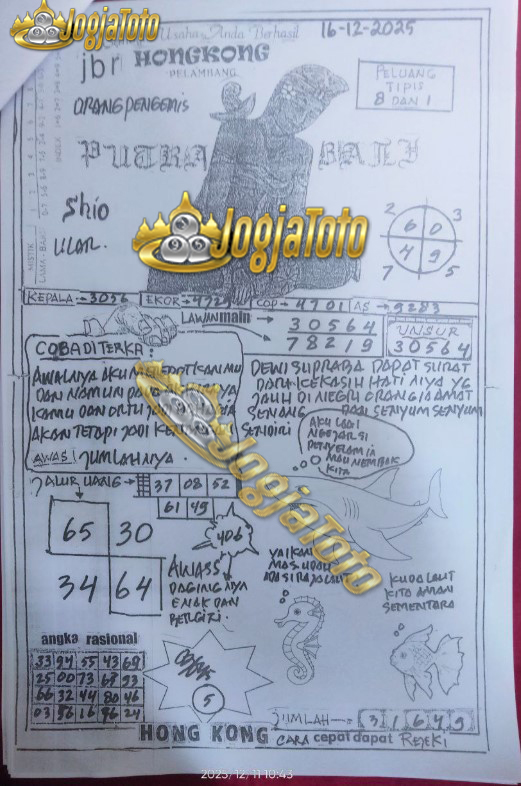 JogjaToto
Usaha Anda Berhasil
16-12-2025
jbr HONGKONG
PELAMBANG
PELUANG
TIPIS
8 DAN 1
ORANG PENGEMIS
PUTRA BALI
Shio
ULAR.
JogjaToto
2 3
6 0
4 9
7 5
KEPALA → 3056 EKOR → 9729 COP → 4701 AS → 9283
LAWAN main →
30564
78219
UNSUR
30564
COBA DITERKA:
KAMU DAN ORTU
AKAN TETAPI JADI
SENDIRI
AWAS JUMLAHNYA.
DEWI SUPRABA DAPAT SURAT
DARI KEKASIH HATI NYA YG
JAUH DI NEGRI ORANG
SENANG DAN SENYUM SENYUM
AKU LAGI
NGEJAR SI
PENYELAM IA
MAU NEMBAK
KITA
JogjaToto
JALUR UANG → 37 08 52
61 49
65 30
34 64
406
AWASS
DAGING NYA
ENAK DAN
BERGIZI.
KUDA LAUT
KITA AMAN
SEMENTARA
angka rasional
33 94 55 43 69
25 00 73 68 93
66 32 44 80 46
03 56 16 96 24
5
JUMLAH → 3 1 6 4 9
HONG KONG CARA cepat dapat REJEKI
2025/12/11 10:43